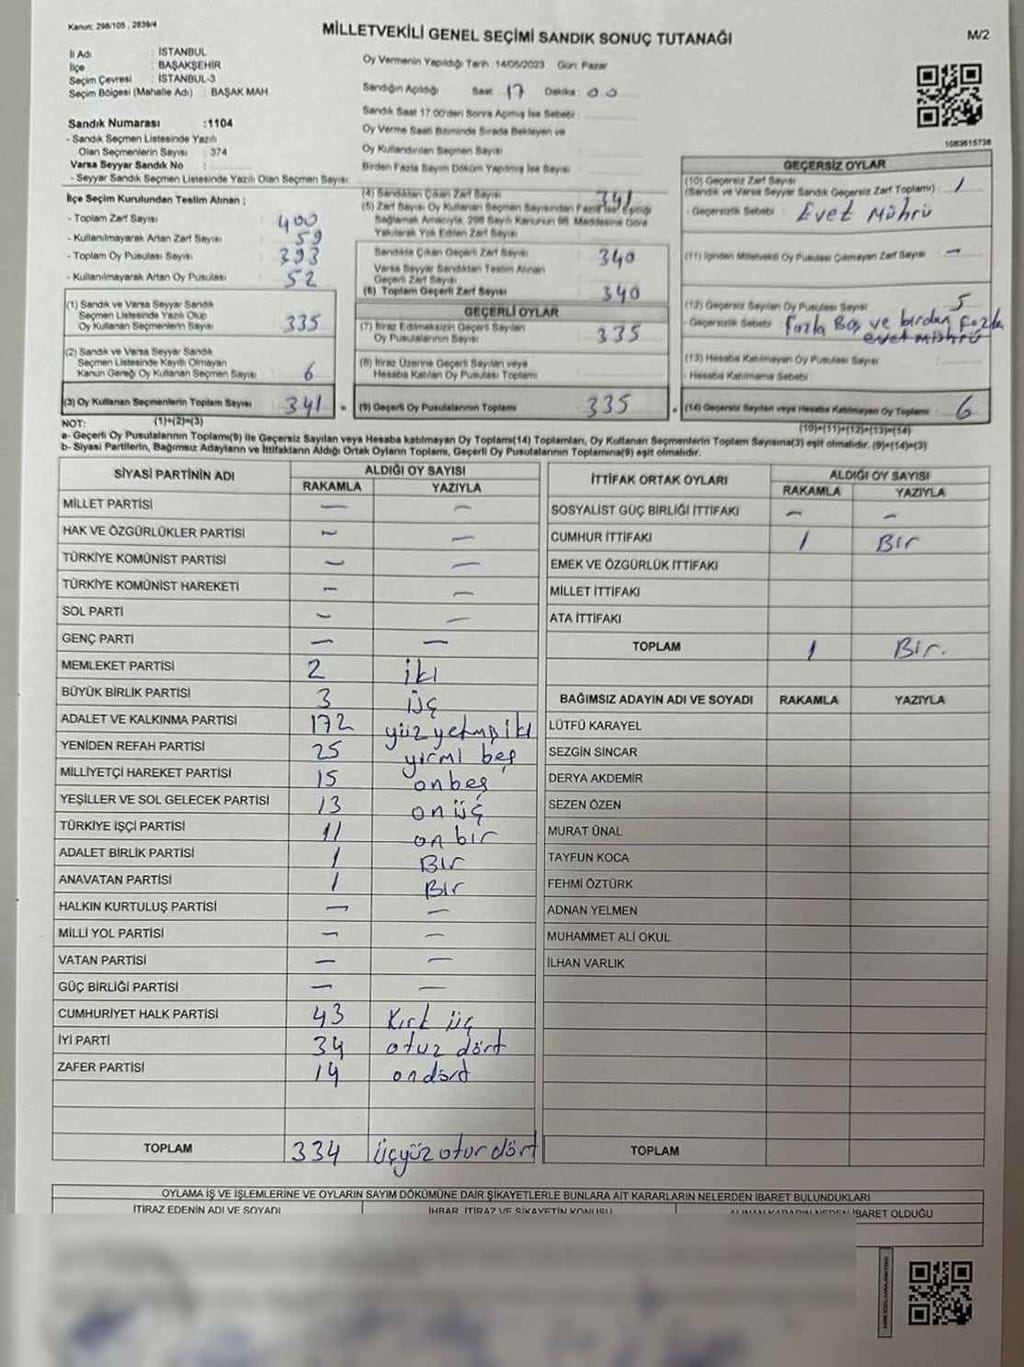 Kanun: 298/105 , 2839/4
MİLLETVEKİLİ GENEL SEÇİMİ SANDIK SONUÇ TUTANAĞI
M/2
İl Adı : İSTANBUL
İlçe : BAŞAKŞEHİR
Seçim Çevresi : İSTANBUL-3
Seçim Bölgesi (Mahalle Adı) : BAŞAK MAH.
Sandık Numarası :1104
- Sandık Seçmen Listesinde Yazılı
Olan Seçmenlerin Sayısı : 374
Varsa Seyyar Sandık No :
- Seyyar Sandık Seçmen Listesinde Yazılı Olan Seçmen Sayısı:
Oy Vermenin Yapıldığı Tarih : 14/05/2023 Gün: Pazar
Sandığın Açıldığı Saat 17 Dakika: 00
Sandık Saat 17.00'den Sonra Açılmış İse Sebebi :
Oy Verme Saati Bitiminde Sırada Bekleyen ve
Oy Kullandırılan Seçmen Sayısı :
Birden Fazla Sayım Döküm Yapılmış İse Sayısı :
1083615738
İlçe Seçim Kurulundan Teslim Alınan ;
- Toplam Zarf Sayısı : 400
- Kullanılmayarak Artan Zarf Sayısı : 59
- Toplam Oy Pusulası Sayısı : 393
- Kullanılmayarak Artan Oy Pusulası : 52
(1) Sandık ve Varsa Seyyar Sandık
Seçmen Listesinde Yazılı Olup
Oy Kullanan Seçmenlerin Sayısı : 335
(2) Sandık ve Varsa Seyyar Sandık
Seçmen Listesinde Kayıtlı Olmayan
Kanun Gereği Oy Kullanan Seçmen Sayısı : 6
(3) Oy Kullanan Seçmenlerin Toplam Sayısı : 341 =
(1)+(2)=(3)
(4) Sandıktan Çıkan Zarf Sayısı : 341
(5) Zarf Sayısı Oy Kullanan Seçmen Sayısından Fazla İse Eşitliği
Sağlamak Amacıyla, 298 Sayılı Kanunun 98. Maddesine Göre
Yakılarak Yok Edilen Zarf Sayısı :
Sandıkta Çıkan Geçerli Zarf Sayısı : 340
Varsa Seyyar Sandıktan Teslim Alınan
Geçerli Zarf Sayısı :
(6) Toplam Geçerli Zarf Sayısı : 340
GEÇERLİ OYLAR
(7) İtiraz Edilmeksizin Geçerli Sayılan
Oy Pusulalarının Sayısı : 335
(8) İtiraz Üzerine Geçerli Sayılan veya
Hesaba Katılan Oy Pusulası Toplamı :
(9) Geçerli Oy Pusulalarının Toplamı : 335 +
GEÇERSİZ OYLAR
(10) Geçersiz Zarf Sayısı
(Sandık ve Varsa Seyyar Sandık Geçersiz Zarf Toplamı) : 1
- Geçersizlik Sebebi : Evet Mührü
(11) İçinden Milletvekili Oy Pusulası Çıkmayan Zarf Sayısı : -
(12) Geçersiz Sayılan Oy Pusulası Sayısı : 5
- Geçersizlik Sebebi : Fazla Boş ve birden fazla
evet mührü
(13) Hesaba Katılmayan Oy Pusulası Sayısı :
- Hesaba Katılmama Sebebi :
(14) Geçersiz Sayılan veya Hesaba Katılmayan Oy Toplamı : 6
(10)+(11)+(12)+(13)=(14)
NOT:
a- Geçerli Oy Pusulalarının Toplamı(9) ile Geçersiz Sayılan veya Hesaba katılmayan Oy Toplamı(14) Toplamları, Oy Kullanan Seçmenlerin Toplam Sayısına(3) eşit olmalıdır. (9)+(14)=(3)
b- Siyasi Partilerin, Bağımsız Adayların ve İttifakların Aldığı Ortak Oyların Toplamı, Geçerli Oy Pusulalarının Toplamına(9) eşit olmalıdır.
SİYASİ PARTİNİN ADI ALDIĞI OY SAYISI
RAKAMLA YAZIYLA
MİLLET PARTİSİ - -
HAK VE ÖZGÜRLÜKLER PARTİSİ - -
TÜRKİYE KOMÜNİST PARTİSİ - -
TÜRKİYE KOMÜNİST HAREKETİ - -
SOL PARTİ - -
GENÇ PARTİ - -
MEMLEKET PARTİSİ 2 iki
BÜYÜK BİRLİK PARTİSİ 3 üç
ADALET VE KALKINMA PARTİSİ 172 yüz yetmiş iki
YENİDEN REFAH PARTİSİ 25 yirmi beş
MİLLİYETÇİ HAREKET PARTİSİ 15 on beş
YEŞİLLER VE SOL GELECEK PARTİSİ 13 on üç
TÜRKİYE İŞÇİ PARTİSİ 11 on bir
ADALET BİRLİK PARTİSİ 1 Bir
ANAVATAN PARTİSİ 1 Bir
HALKIN KURTULUŞ PARTİSİ - -
MİLLİ YOL PARTİSİ - -
VATAN PARTİSİ - -
GÜÇ BİRLİĞİ PARTİSİ - -
CUMHURİYET HALK PARTİSİ 43 Kırk üç
İYİ PARTİ 34 otuz dört
ZAFER PARTİSİ 14 on dört
TOPLAM 334 üçyüz otuz dört
İTTİFAK ORTAK OYLARI ALDIĞI OY SAYISI
RAKAMLA YAZIYLA
SOSYALİST GÜÇ BİRLİĞİ İTTİFAKI - -
CUMHUR İTTİFAKI 1 Bir
EMEK VE ÖZGÜRLÜK İTTİFAKI
MİLLET İTTİFAKI
ATA İTTİFAKI
TOPLAM 1 Bir.
BAĞIMSIZ ADAYIN ADI VE SOYADI RAKAMLA YAZIYLA
LÜTFÜ KARAYEL
SEZGİN SİNCAR
DERYA AKDEMİR
SEZEN ÖZEN
MURAT ÜNAL
TAYFUN KOCA
FEHMİ ÖZTÜRK
ADNAN YELMEN
MUHAMMET ALİ OKUL
İLHAN VARLIK
TOPLAM
OYLAMA İŞ VE İŞLEMLERİNE VE OYLARIN SAYIM DÖKÜMÜNE DAİR ŞİKAYETLERLE BUNLARA AİT KARARLARIN NELERDEN İBARET BULUNDUKLARI
İTİRAZ EDENİN ADI VE SOYADI İHBAR, İTİRAZ VE ŞİKAYETİN KONUSU ALINAN KARARIN NEDEN İBARET OLDUĞU